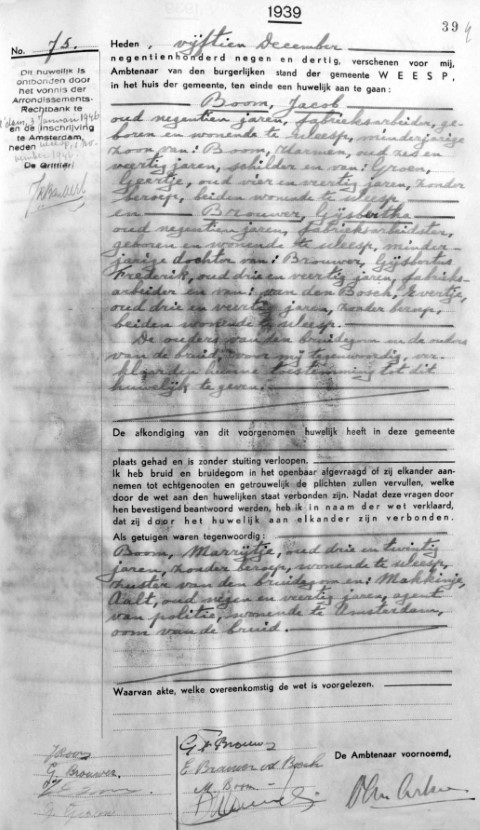 1939
39
No. 75.
Dit huwelijk is
ontbonden door
het vonnis der
Arrondissements-
Rechtbank te
A'dam, 3 Januari 1946
en de inschrijving
te Amsterdam,
heden
1946.
De Griffier:
Heden, vijftien December
negentienhonderd negen en dertig, verschenen voor mij,
Ambtenaar van den burgerlijken stand der gemeente WEESP,
in het huis der gemeente, ten einde een huwelijk aan te gaan:
Boom, Jacob
oud negentien jaren, fabrieksarbeider, ge-
boren en wonende te Weesp, minderjarige
zoon van: Boom, Harmen, oud zes en
veertig jaren, schilder en van: Groen,
Geertje, oud vier en veertig jaren, zonder
beroep, beiden wonende te Weesp
en Brouwer, Gijsbertha
oud negentien jaren, fabrieksarbeidster,
geboren en wonende te Weesp, minder-
jarige dochter van: Brouwer, Gijsbertus
Frederik, oud drie en veertig jaren, fabrieks-
arbeider en van: van den Bosch, Evertje,
oud drie en veertig jaren, zonder beroep,
beiden wonende te Weesp.
De ouders van den bruidegom en de ouders
van de bruid, voor mij tegenwoordig, ver-
klaarden hunne toestemming tot dit
huwelijk te geven.
De afkondiging van dit voorgenomen huwelijk heeft in deze gemeente
plaats gehad en is zonder stuiting verloopen.
Ik heb bruid en bruidegom in het openbaar afgevraagd of zij elkander aan-
nemen tot echtgenooten en getrouwelijk de plichten zullen vervullen, welke
door de wet aan den huwelijken staat verbonden zijn. Nadat deze vragen door
hen bevestigend beantwoord werden, heb ik in naam der wet verklaard,
dat zij door het huwelijk aan elkander zijn verbonden.
Als getuigen waren tegenwoordig:
Boom, Marrijtje, oud drie en twintig
jaren, zonder beroep, wonende te Weesp,
zuster van den bruidegom en: Makkinje,
Aalt, oud negen en veertig jaren, agent
van politie, wonende te Amsterdam,
oom van de bruid.
Waarvan akte, welke overeenkomstig de wet is voorgelezen.
J Boom
G. Brouwer
G F Brouwer
E Brouwer vd Bosch
M. Boom
G Groen
De Ambtenaar voornoemd,